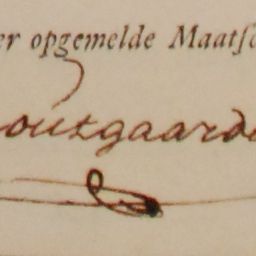 er opgemelde Maatſc
outgaarde